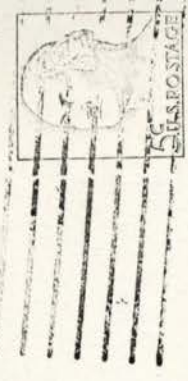 5c
U.S. POSTAGE